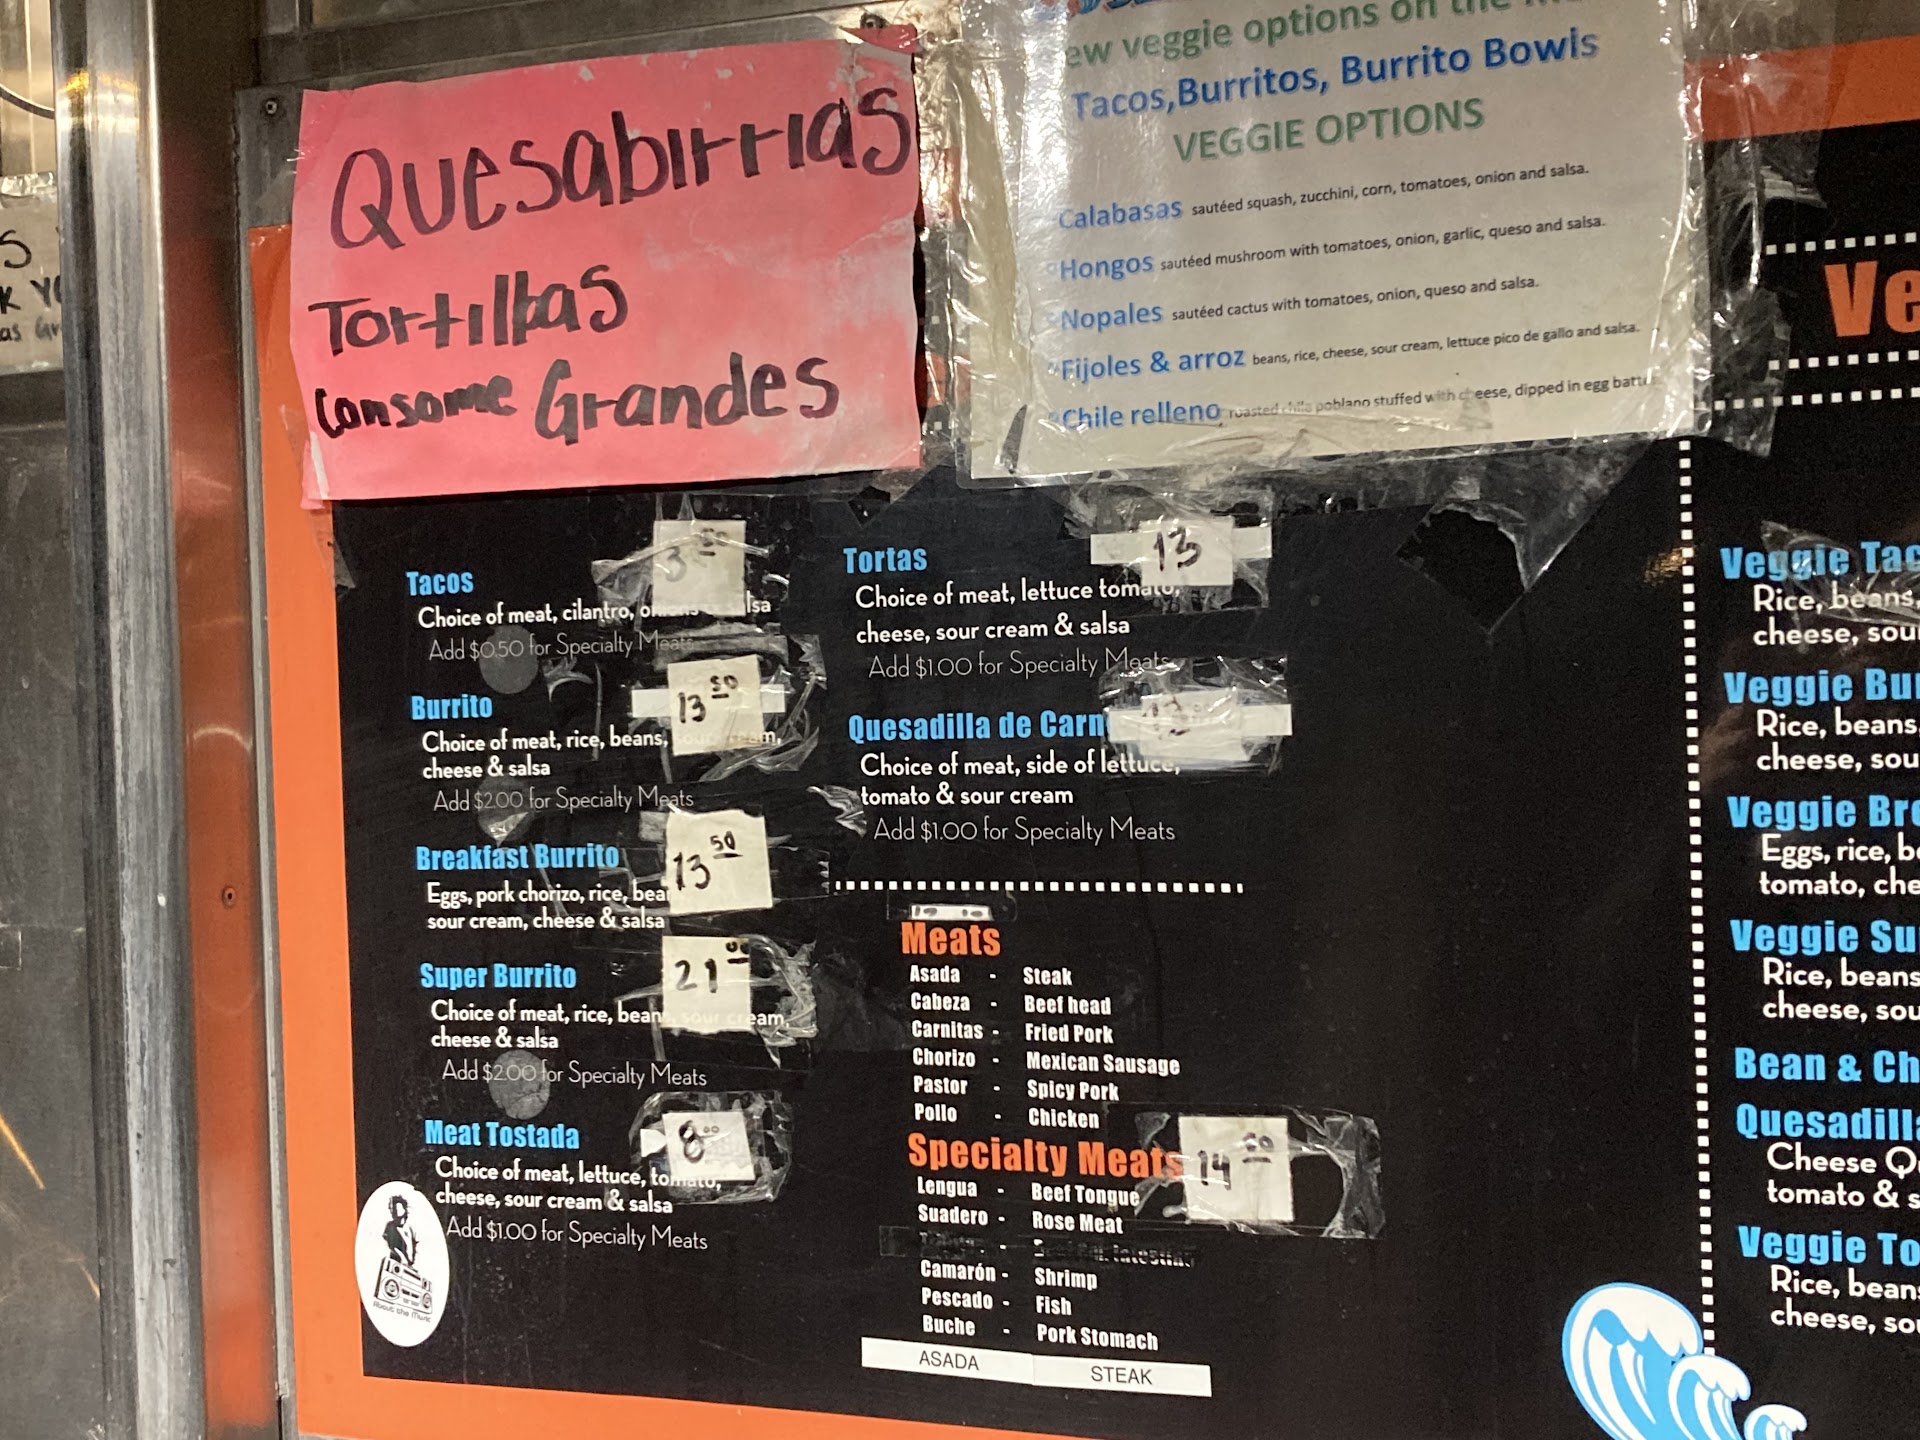 Quesabirrias
Tortillas
Consome Grandes
ew veggie options on the
Tacos,Burritos, Burrito Bowls
VEGGIE OPTIONS
Calabasas sautéed squash, zucchini, corn, tomatoes, onion and salsa.
Hongos sautéed mushroom with tomatoes, onion, garlic, queso and salsa.
Nopales sautéed cactus with tomatoes, onion, queso and salsa.
Fijoles & arroz beans, rice, cheese, sour cream, lettuce pico de gallo and salsa.
Chile relleno roasted chile poblano stuffed with cheese, dipped in egg batte
Tacos 3.50
Choice of meat, cilantro, onions salsa
Add $0.50 for Specialty Meats
Burrito 13 50
Choice of meat, rice, beans, sour cream,
cheese & salsa
Add $2.00 for Specialty Meats
Breakfast Burrito 13 50
Eggs, pork chorizo, rice, bea
sour cream, cheese & salsa
Super Burrito 21 00
Choice of meat, rice, beans, sour cream,
cheese & salsa
Add $2.00 for Specialty Meats
Meat Tostada 8 00
Choice of meat, lettuce, tomato,
cheese, sour cream & salsa
Add $1.00 for Specialty Meats
About the Music
Tortas 13
Choice of meat, lettuce tomato,
cheese, sour cream & salsa
Add $1.00 for Specialty Meats
Quesadilla de Carn
Choice of meat, side of lettuce,
tomato & sour cream
Add $1.00 for Specialty Meats
Meats
Asada - Steak
Cabeza - Beef head
Carnitas - Fried Pork
Chorizo - Mexican Sausage
Pastor - Spicy Pork
Pollo - Chicken
Specialty Meats 14
Lengua - Beef Tongue
Suadero - Rose Meat
Camarón - Shrimp
Pescado - Fish
Buche - Pork Stomach
ASADA STEAK
Ve
Veggie Tac
Rice, beans,
cheese, sou
Veggie Bur
Rice, beans,
cheese, sou
Veggie Bre
Eggs, rice, be
tomato, che
Veggie Su
Rice, beans
cheese, sou
Bean & Ch
Quesadilla
Cheese Qu
tomato & s
Veggie To
Rice, bean
cheese, so